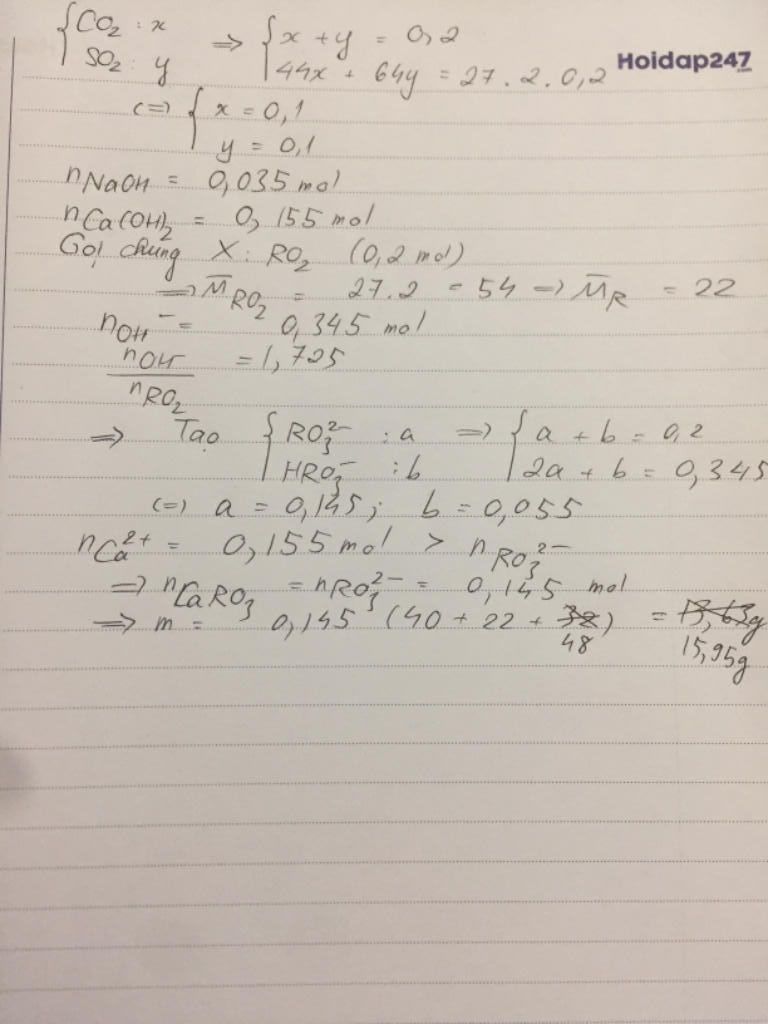 {CO₂ : x
SO₂ : y ⇒ {x + y = 0,2
44x + 64y = 27.2.0,2
Hoidap247
(=) {x = 0,1
y = 0,1
nNaOH = 0,035 mol
nCa(OH)₂ = 0,155 mol
Gọi chung X : RO₂ (0,2 mol)
⇒ M̅RO₂ = 27.2 = 54 ⇒ M̅R = 22
nOH⁻ = 0,345 mol
nOH⁻/nRO₂ = 1,725
⇒ Tạo {RO₃²⁻ : a ⇒ {a + b = 0,2
HRO₃⁻ : b 2a + b = 0,345
(=) a = 0,145; b = 0,055
nCa²⁺ = 0,155 mol > nRO₃²⁻
⇒ nCaRO₃ = nRO₃²⁻ = 0,145 mol
⇒ m = 0,145 (40 + 22 + 32) = 13,63g
48 15,95g